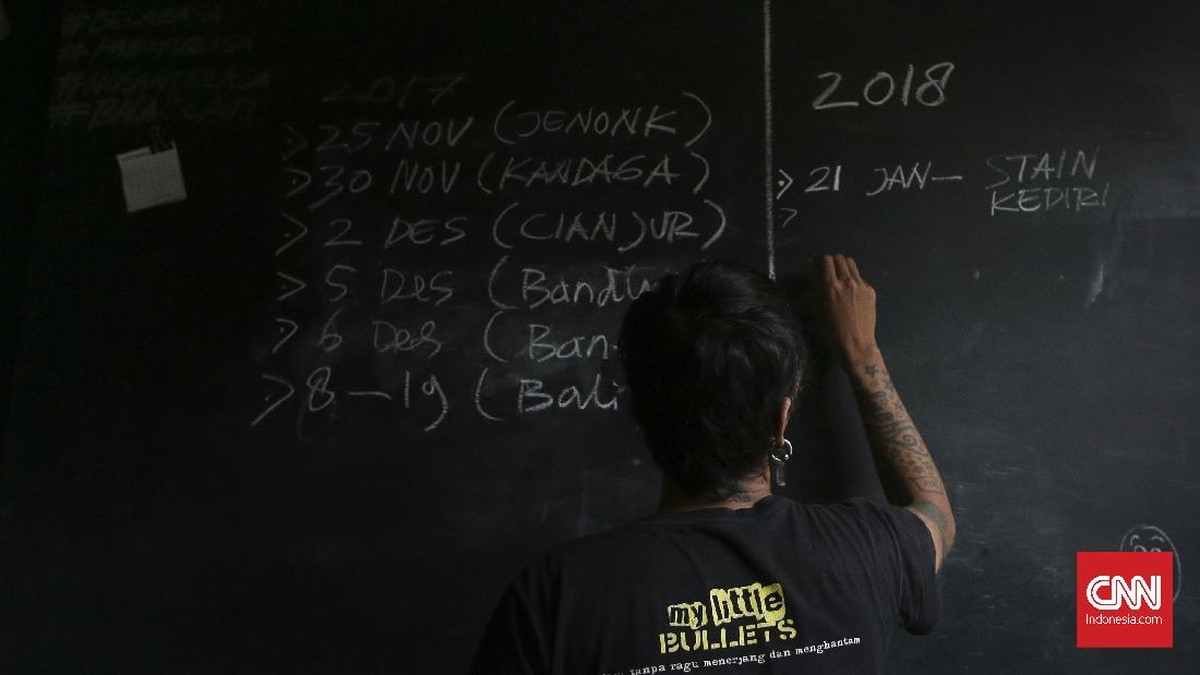 2017
> 25 NOV (JENONK)
> 30 NOV (KANDAGA)
> 2 DES (CIANJUR)
> 5 Des (Bandu
> 6 Des (Ban
> 8-19 (Bali
2018
> 21 JAN - STAIN
KEDIRI
>
my little
BULLETS
tanpa ragu menerjang dan menghantam
CNN
Indonesia.com